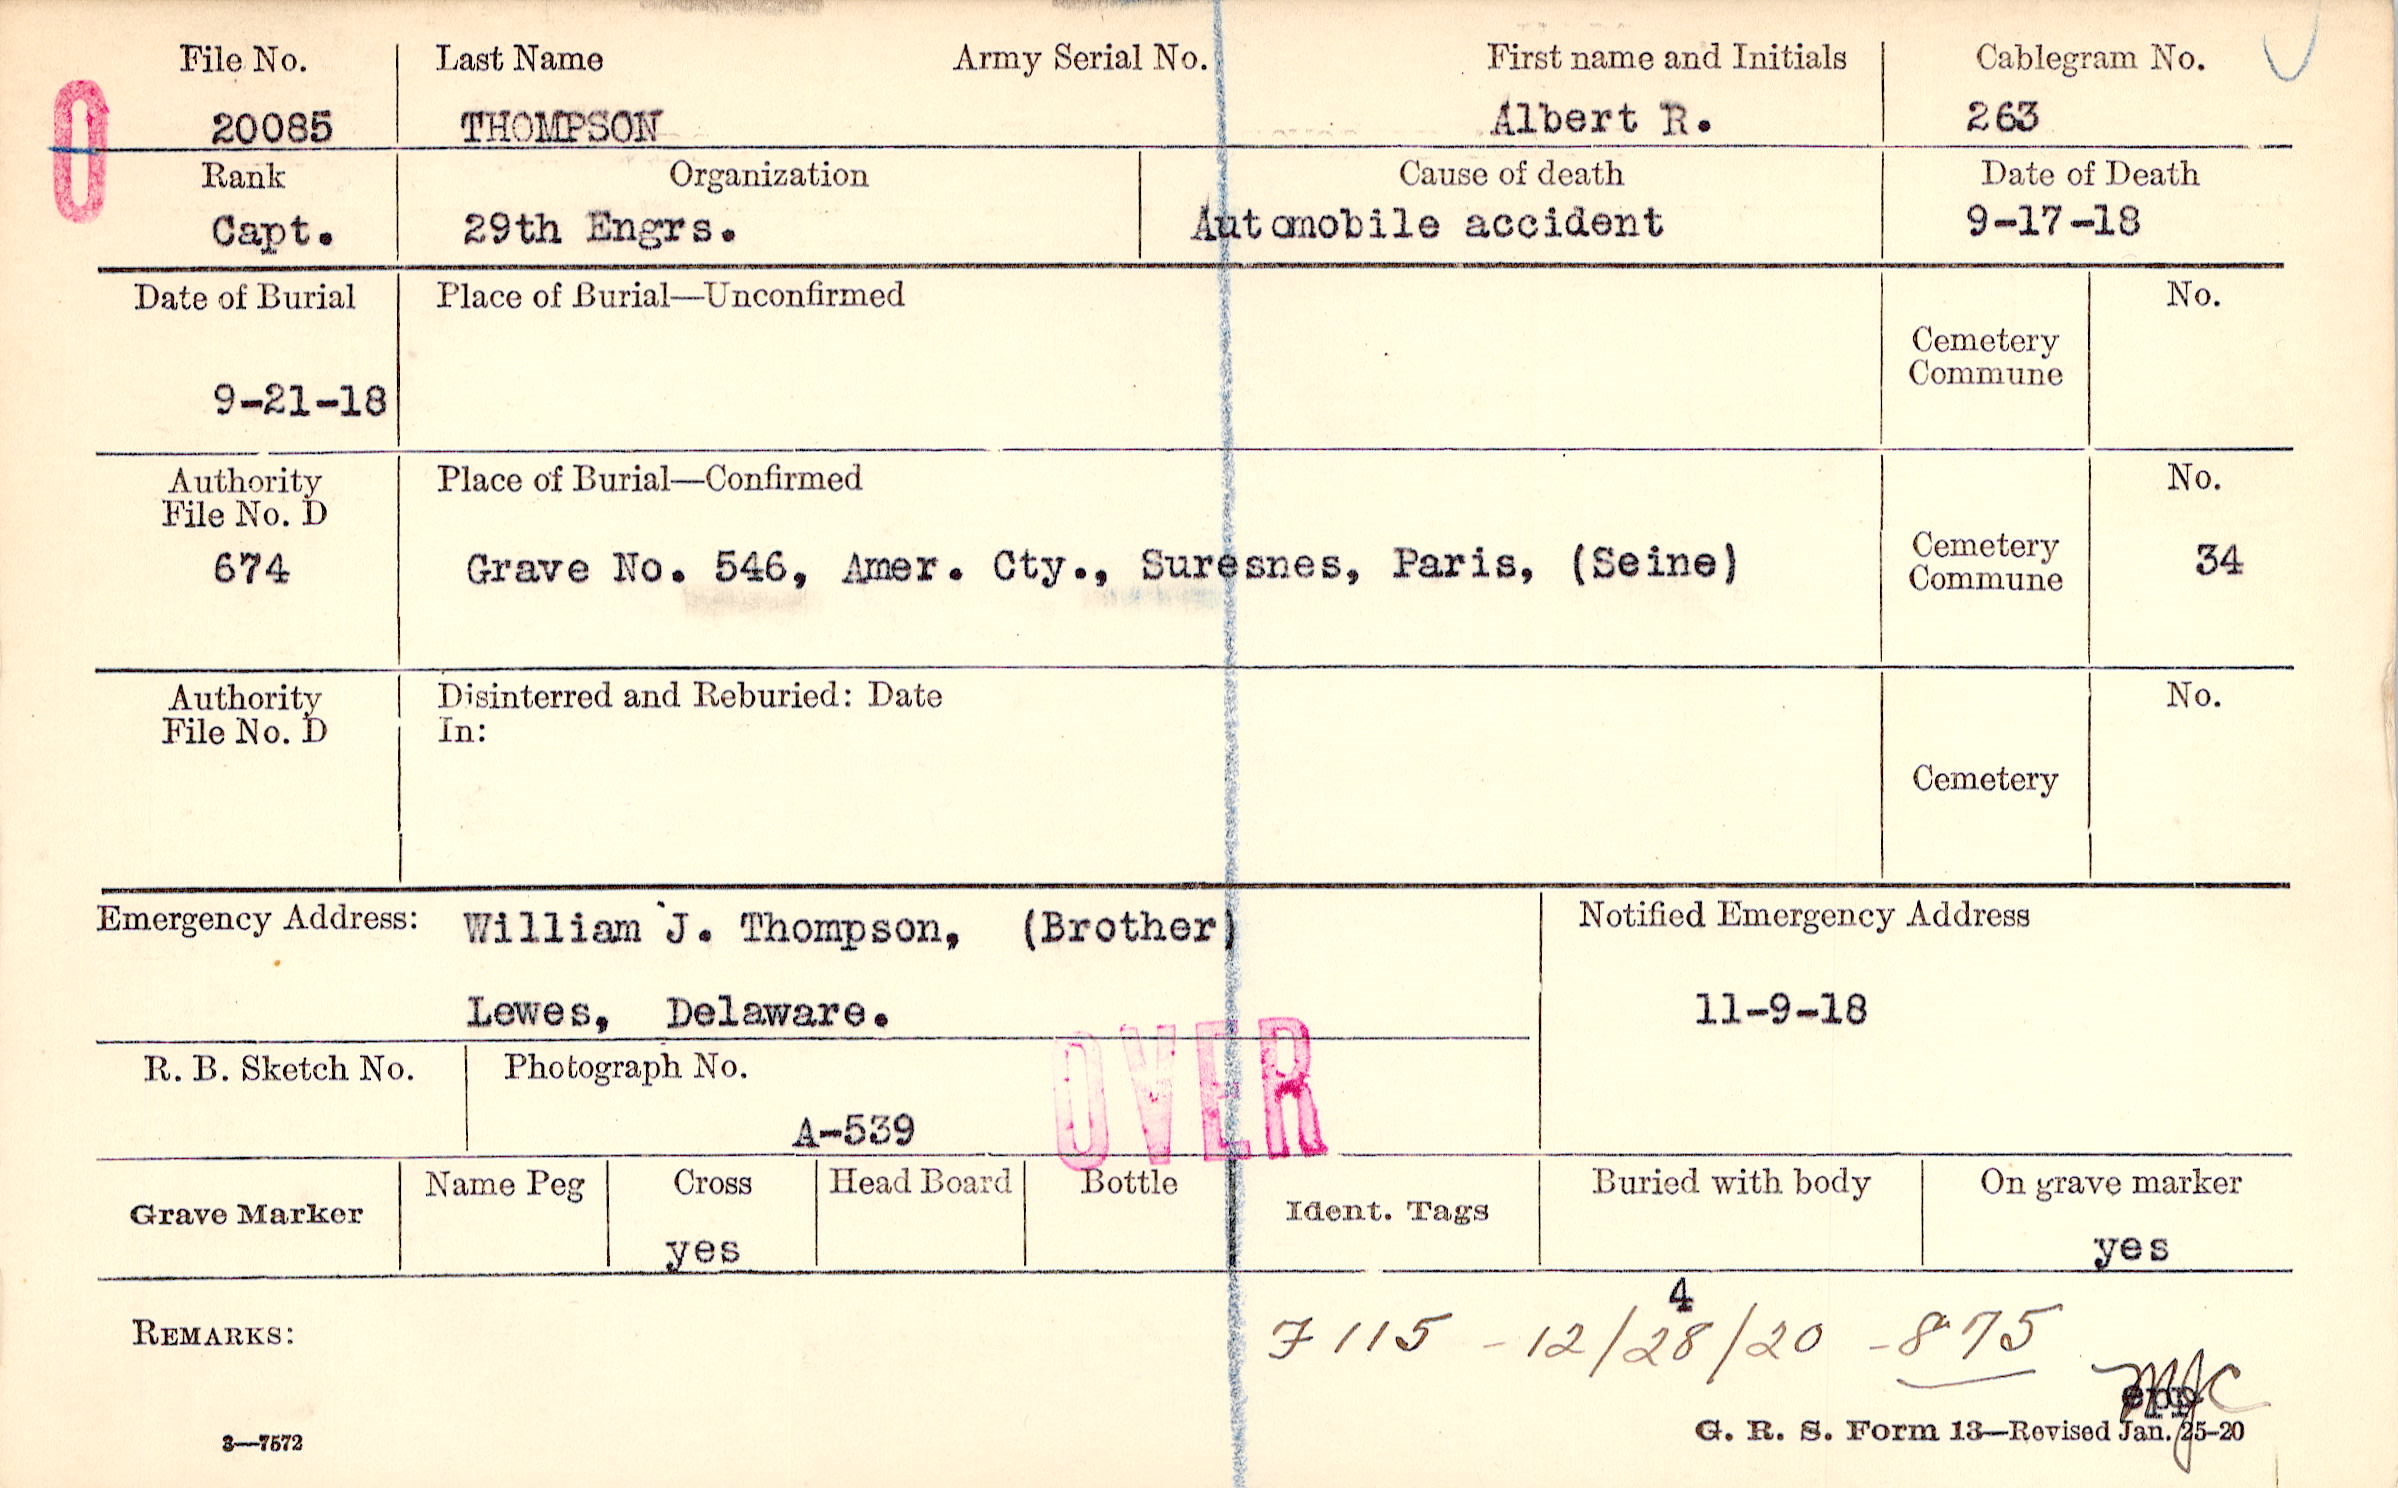 File No. Last Name Army Serial No. First name and Initials Cablegram No.
O
20085 THOMPSON Albert R. 263
Rank Organization Cause of death Date of Death
Capt. 29th Engrs. Automobile accident 9-17-18
Date of Burial Place of Burial—Unconfirmed No.
Cemetery
Commune
9-21-18
Authority Place of Burial—Confirmed No.
File No. D
674 Grave No. 546, Amer. Cty., Suresnes, Paris, (Seine) Cemetery 34
Commune
Authority Disinterred and Reburied: Date No.
File No. D In:
Cemetery
Emergency Address: William J. Thompson, (Brother) Notified Emergency Address
Lewes, Delaware. 11-9-18
OVER
R. B. Sketch No. Photograph No.
A-539
Grave Marker Name Peg Cross Head Board Bottle Ident. Tags Buried with body On grave marker
yes yes
4
REMARKS: 7115 - 12/28/20 - 875
epp
MJC
3—7572 G. R. S. Form 13—Revised Jan. 25-20